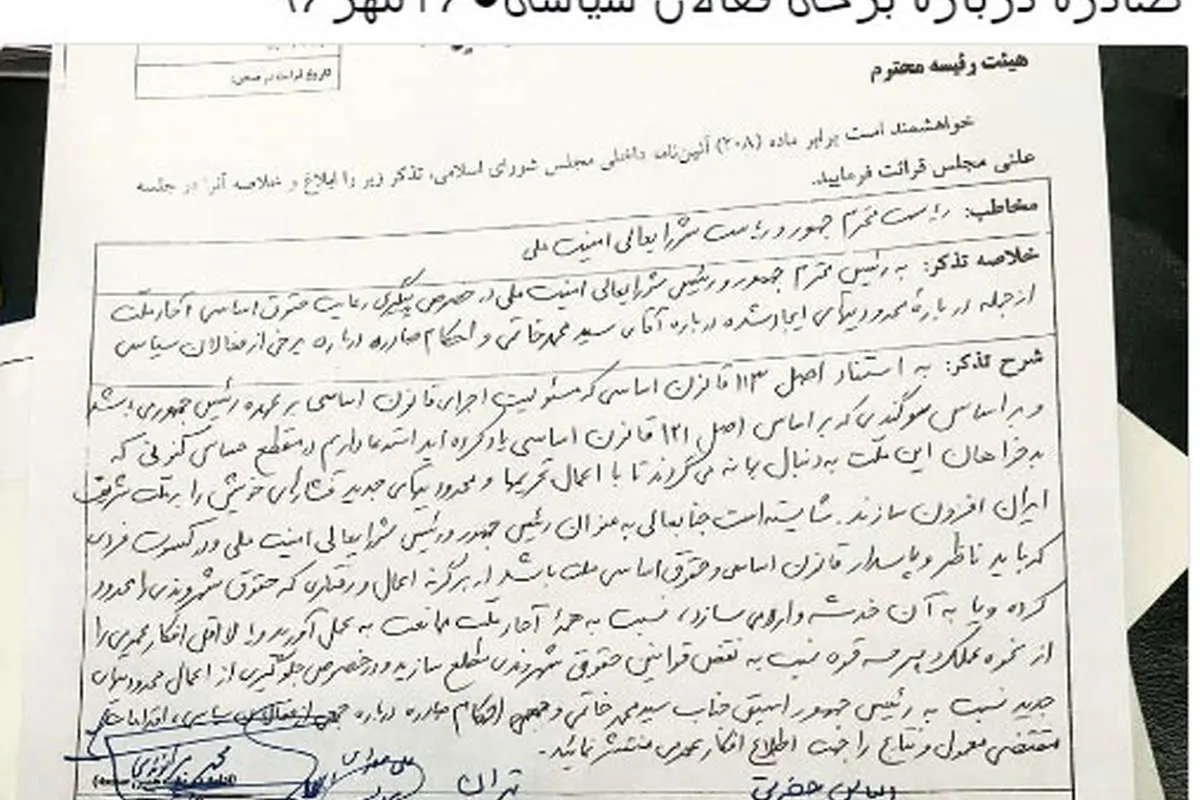 صادره درباره برخی فعالان سیاسی● ۱۶مهر۹۶
تاریخ قرائت در صحن:
هیئت رئیسه محترم
خواهشمند است برابر ماده (۲۰۸) آئین‌نامه داخلی مجلس شورای اسلامی، تذکر زیر را ابلاغ و خلاصه آنرا در جلسه
علنی مجلس قرائت فرمایید.
مخاطب: ریاست محترم جمهور و ریاست شورایعالی امنیت ملی
خلاصه تذکر: به رئیس محترم جمهور و رئیس شورایعالی امنیت ملی در خصوص پیگیری رعایت حقوق اساسی آحاد ملت
از جمله درباره محدودیتهای ایجاد شده درباره آقای سید محمد خاتمی و احکام صادره درباره برخی از فعالان سیاسی
شرح تذکر: به استناد اصل ۱۱۳ قانون اساسی که مسئولیت اجرای قانون اساسی بر عهده رئیس جمهوری باشد
و بر اساس سوگندی که بر اساس اصل ۱۲۱ قانون اساسی یاد کرده اید استدعا دارم در مقطع حساس کنونی که
بدخواهان این ملت به دنبال بهانه می گردند تا با اعمال تحریمها و محدودیتهای جدید فشارهای خویش را بر ملت شریف
ایران افزون سازند. شایسته است جنابعالی به عنوان رئیس جمهور و رئیس شورایعالی امنیت ملی و در کسوت فردی
که باید ناظر و پاسدار قانون اساسی و حقوق اساسی ملت باشد از هرگونه اعمال و رفتاری که حقوق شهروندی را محدود
کرده و یا به آن خدشه وارد می سازد، نسبت به همه آحاد ملت ممانعت به عمل آورید و یا لااقل افکار عمومی را
از نحوه عملکرد هر سه قوه نسبت به نقض قوانین حقوق شهروندی مطلع سازید و در خصوص جلوگیری از اعمال محدودیتهای
جدید نسبت به رئیس جمهور اسبق جناب سید محمد خاتمی و احکام صادره درباره جمعی از فعالان سیاسی، اقدامات
مقتضی معمول و نتایج را جهت اطلاع افکار عمومی منتشر نمائید.
الیاس حضرتی
تهران